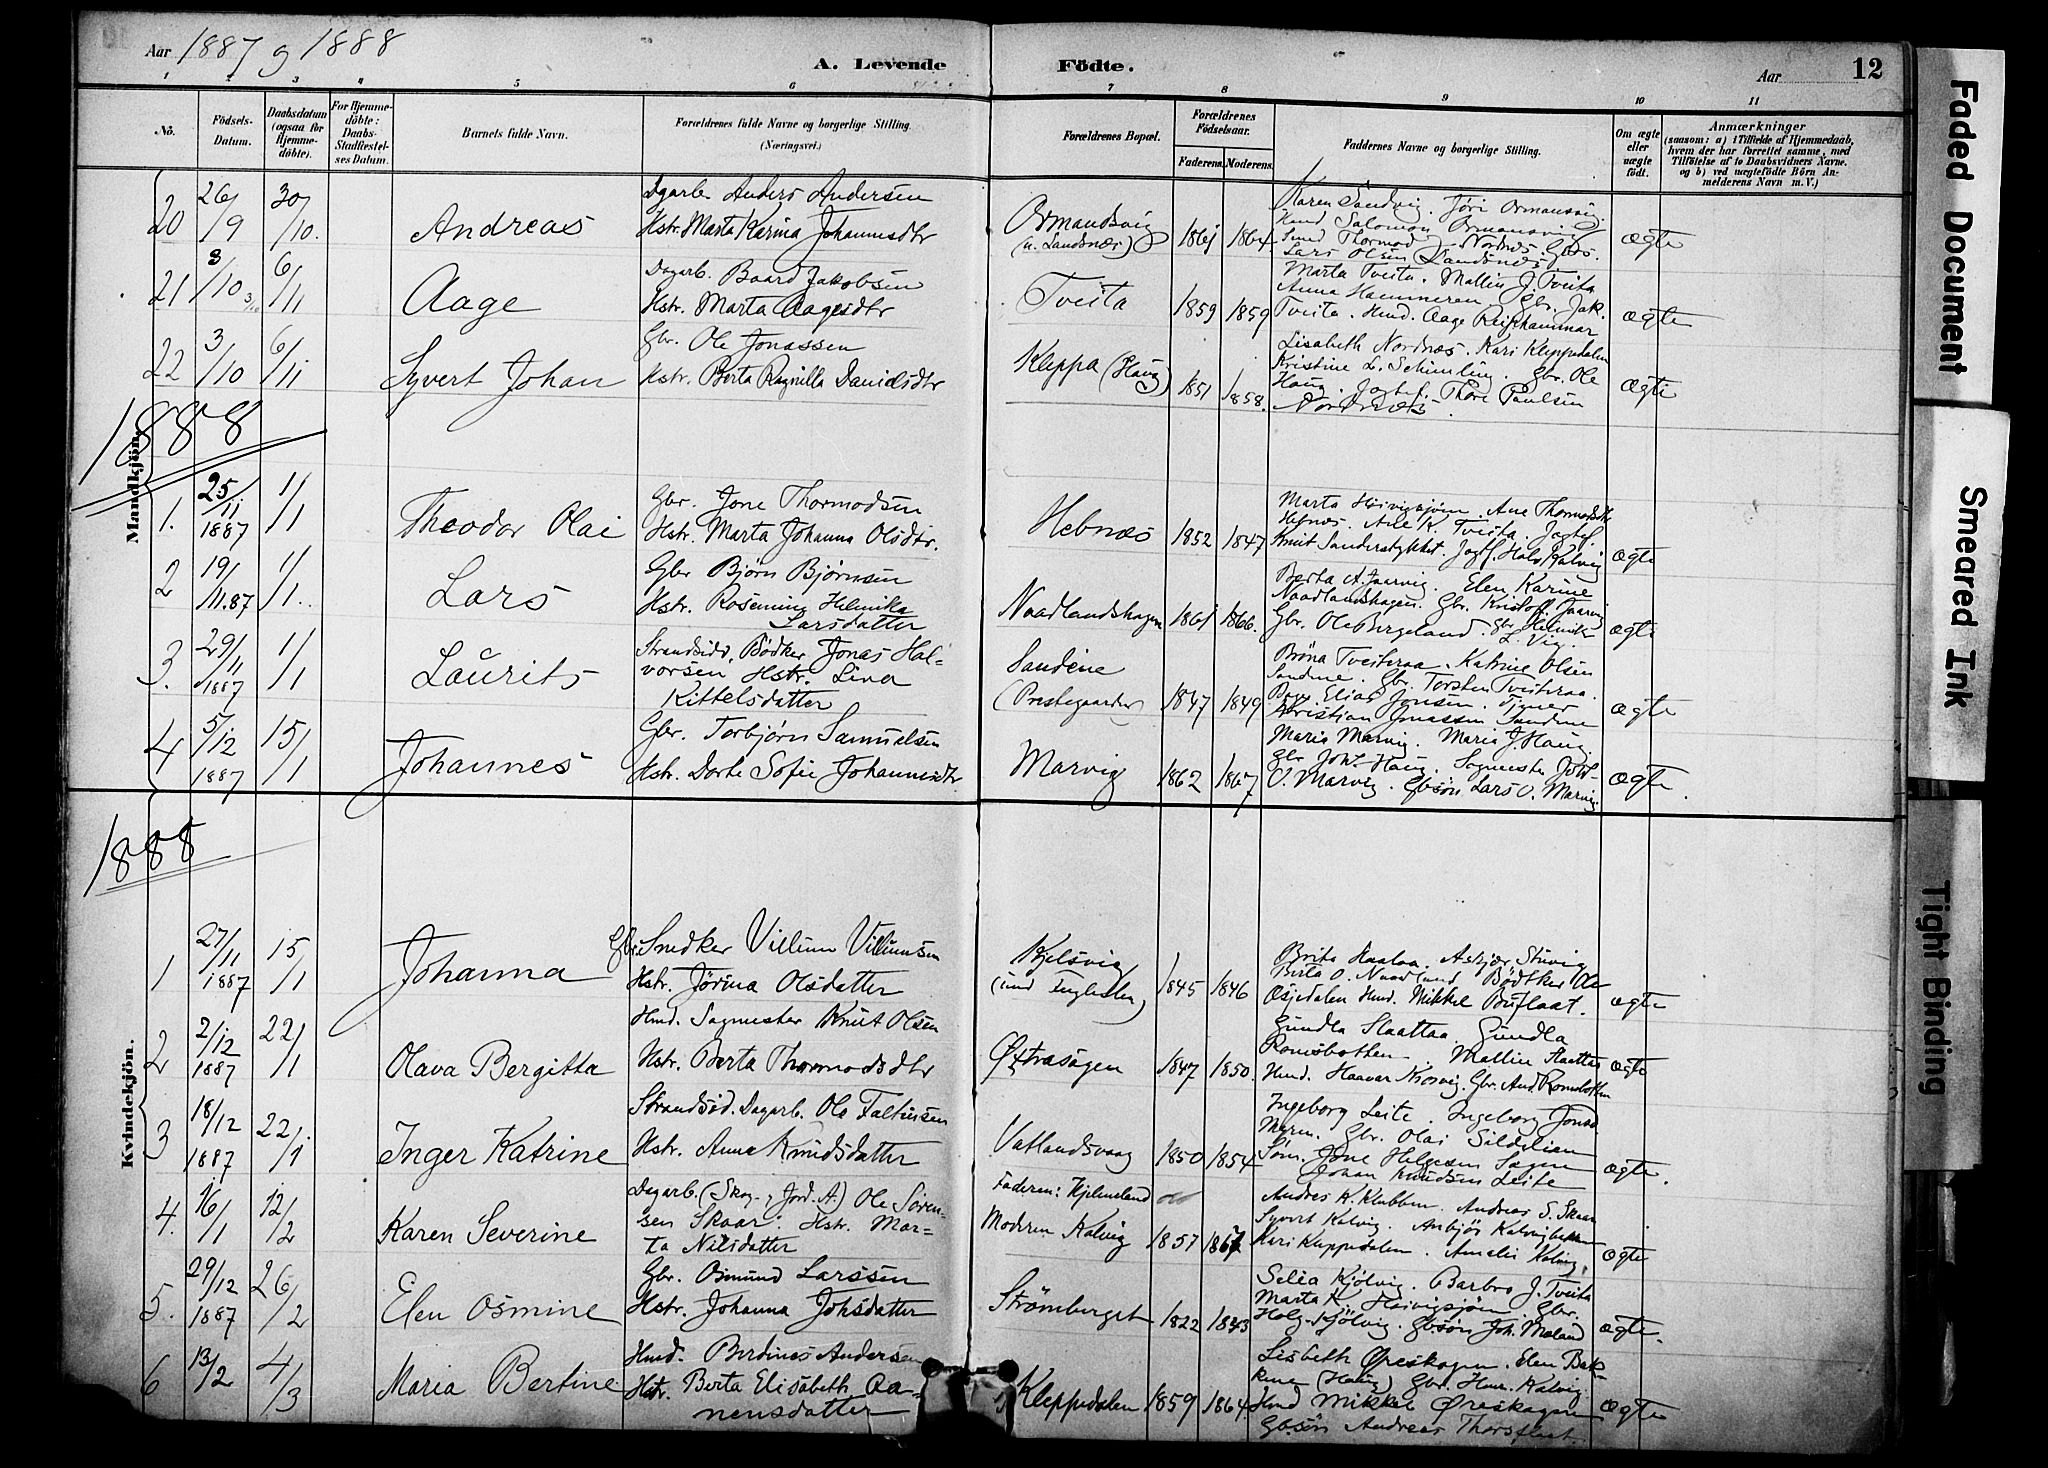 Aar 1887 og 1888
A. Levende Födte.
Aar 12
1 2 3 4 5 6 7 8 9 10 11
No.
Födsels-Datum.
Daabsdatum (ogsaa for Hjemme-döbte).
For Hjemme-döbte: Daabs-Stadfæstel-ses Datum.
Barnets fulde Navn.
Forældrenes fulde Navne og borgerlige Stilling.
(Næringsvei.)
Forældrenes Bopæl.
Forældrenes Födselsaar.
Faderens. Moderens.
Faddernes Navne og borgerlige Stilling.
Om ægte eller uægte födt.
Anmærkninger
(saasom: a) i Tilfælde af Hjemmedaab, hvem der har forrettet samme, med Tilföielse af to Daabsvidners Navne. og b) ved uægtefödte Börn An-melderens Navn m. V.)
Mandkjön.
20 26/9 30/10. Andreas
Dgarb. Anders Andersen
Hstr. Marta Karina Johannesdtr
Ormandsvig (u. Landsnæs) 1861 1864
Karen Sandvig. Jöri Ormansvig.
Hmd Salomon Ormansvig
Smd Thormod Nordnæs. Gbs.
Lars Olsen Landsnæs.
ægte
21 3/10 6/11 Aage
Dagarb. Baard Jakobsen
Hstr. Marta Aagesdtr
Tveita 1859 1859
Marta Tveita. Mallin J. Tveita
Anna Hammeren. Gbr. Jak.
Tveita. Hmd. Aage Reishammar
ægte
22 3/10 6/11 Syvert Johan
Gbr. Ole Jonassen
Hstr. Berta Ragnilla Danielsdtr
Kleppa (Haug) 1851 1858.
Lisabeth Nordnæs. Kari Kleppedalen
Kristine L. Schimling. Gbr. Ole
Haug. Jagtef. Thore Paulsen
Nordnæs.
ægte
1888
1. 25/11 1887 1/1 Theodor Olai
Gbr. Jone Thormodsen
Hstr. Marta Johanna Olsdtr.
Hebnæs 1852 1847
Marta Höivigsjöen. Ane Thormodsdtr
Hebnæs. Ane K. Tveita. Jagtef.
Knut Sanderstykket. Jagtf. Halv. Kalvig
ægte
2 19/11.87 1/1.. Lars
Gbr Bjørn Bjørnsen
Hstr. Rosemine Helmika
Larsdatter
Naadlandshagen 1861 1866.
Berta A. Jaarvig. Elen Karine
Naadlandshagen. Gbr. Kristoff. Jaarvig
Gbr. Ole Bergeland. Gbr Helmik
L. Vig.
ægte
3. 29/11 1887 1/1 Laurits
Strandsidd. Bødker Jonas Hal-
vorsen Hstr. Lina
Kittelsdatter
Sandene
(Prestegaarden) 1847 1849
Bröna Tveiteraa. Katrine Olsen
Sandene. Gbr. Torsten Tveiteraa.
Elias Jonsen. tjener
Kristian Jonassen Sandene
ægte
4 5/12 1887 15/1 Johannes
Gbr. Torbjørn Samuelsen
Hstr. Dorte Sofie Johannesdtr
Marvig 1862 1867
Maria Marvig. Maria J. Haug.
Gbr Joh. Haug. Sagmester Joh.
O. Marvig. Gbsön Lars O. Marvig
ægte.
Kvindekjön.
1888
1 27/11 1887 15/1 Johanna
Gbr. Snedker Villum Villumsen
Hstr. Jørina Olsdatter
Kjelsvig
(und Englesten) 1845 1846
Brita Haalaa. Asbjør Stuvig
Birta O. Naadland Bødtker Ole
Osjedalen Hmd. Mikkel Buflaat.
ægte
2 2/12 1887 22/1 Olava Bergitta
Hmd. Sagmester Knut Olsen
Hstr. Berta Thormodsdtr
Østrasagen 1847 1850.
Gundla Slaattaa Gundla
Romsbotten. Mallin Slaattaa
Hmd. Haavar Krosvig. Gbr. And. Romsbotten
ægte
3 18/12 1887 22/1 Inger Katrine
Strandsid. Dagarb. Ole Faltinsen
Hstr. Anna Knudsdatter
Vatlandsvaag 1850 1854
Ingeborg Leite. Ingeborg Jonsd.
Mæren. Gbr. Olai Sildelian
Søm. Jone Helgesen Sagen
Johan Knudsen Leite
ægte.
4. 16/1 12/2 Karen Severine
Dagarb. (Skog-, Jord. A.) Ole Sören-
sen Skaar: Hstr. Mar-
ta Nilsdatter
Faderen: Hjelmeland
Moderen Kalvig 1857 1867
Andrea K. Klubben. Andreas S. Skaar
Syvert Kalvig. Anbjör Kalvigbakken
Kari Kleppedalen. Amalie Kalvig.
ægte
5. 29/12 1887 26/2 Elen Osmine
Gbr. Osmund Larssen
Hstr. Johanna Johsdatter
Strömberget 1822 1843
Selia Kjölvig. Barbro J. Tveita
Marta K. Høivigsjøen. Gbr.
Helg. Kjölvig. Gbsøn Joh. Meland
ægte.
6 13/2 4/3 Maria Bertine
Hmd. Berdines Andersen
Hstr. Berta Elisabeth Aa-
nensdatter
Kleppedalen 1859 1864
Lisbeth Øreskogen. Elen Bak-
kene (Haug) Gbr. Hmr. Kalvig.
Hmd Mikkel Øreskogen
Gbsön Andreas Thorsflaat.
ægte
Faded Document
Smeared Ink
Tight Binding